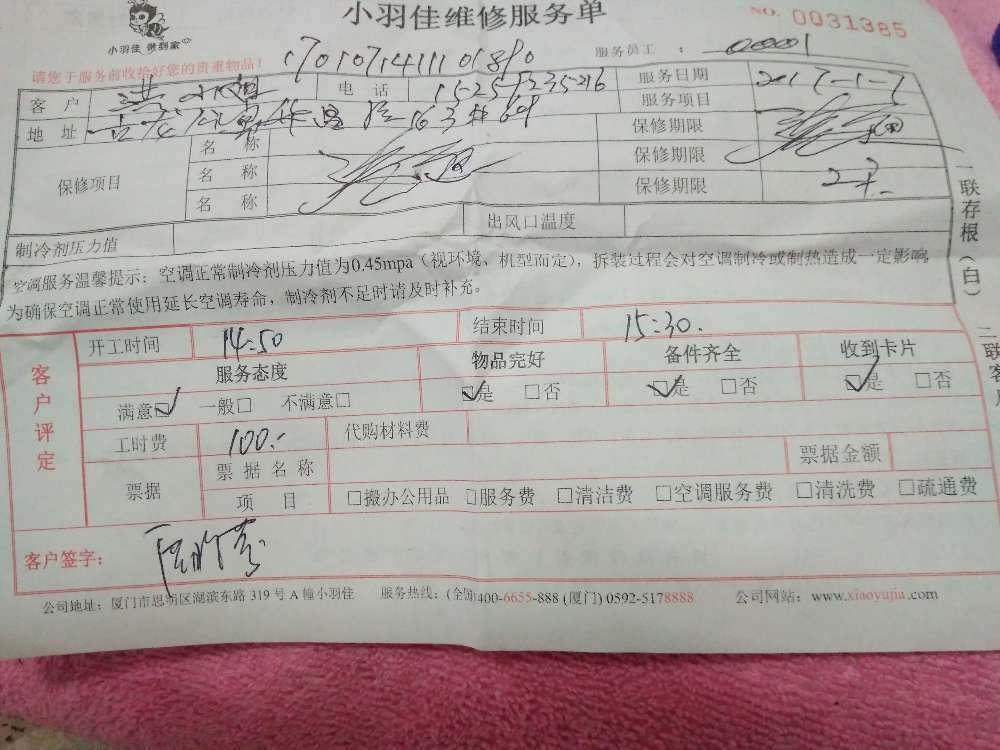 小羽佳维修服务单
NO. 0031385
小羽佳 做到家
请您于服务前收给好您的贵重物品！
服务员工：00001
客户 电话 服务日期 2017-1-7
地址 服务项目
保修项目 名称 保修期限
名称 保修期限
名称 保修期限
制冷剂压力值 出风口温度
空调服务温馨提示：空调正常制冷剂压力值为0.45mpa（视环境、机型而定），拆装过程会对空调制冷或制热造成一定影响
为确保空调正常使用延长空调寿命，制冷剂不足时请及时补充。
一联存根（白）
二联客户
客户评定
开工时间 14:50 结束时间 15:30.
服务态度 物品完好 备件齐全 收到卡片
满意☑ 一般□ 不满意□ ☑是 □否 ☑是 □否 ☑是 □否
工时费 100.- 代购材料费
票据 票据名称 票据金额
项目 □搬办公用品 □服务费 □清洁费 □空调服务费 □清洗费 □疏通费
客户签字：
公司地址：厦门市思明区湖滨东路 319 号 A 幢小羽佳 服务热线：(全国)400-6655-888 (厦门) 0592-5178888 公司网站：www.xiaoyujia.com